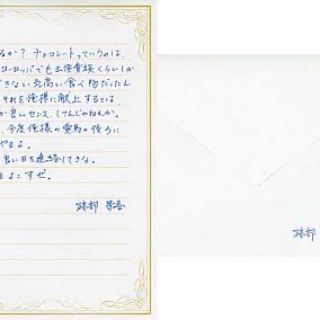 るか？チョコレートっていうのは、
ヨーロッパでも王侯貴族くらいしか
できない気高い食べ物だったん
それを俺様に献上するとは
が言いセンス、してんじゃねぇか。
、今度俺様の愛馬の後ろに
やるよ。
良い日を連絡してきな。
よこすぜ。
跡部 景吾
跡部